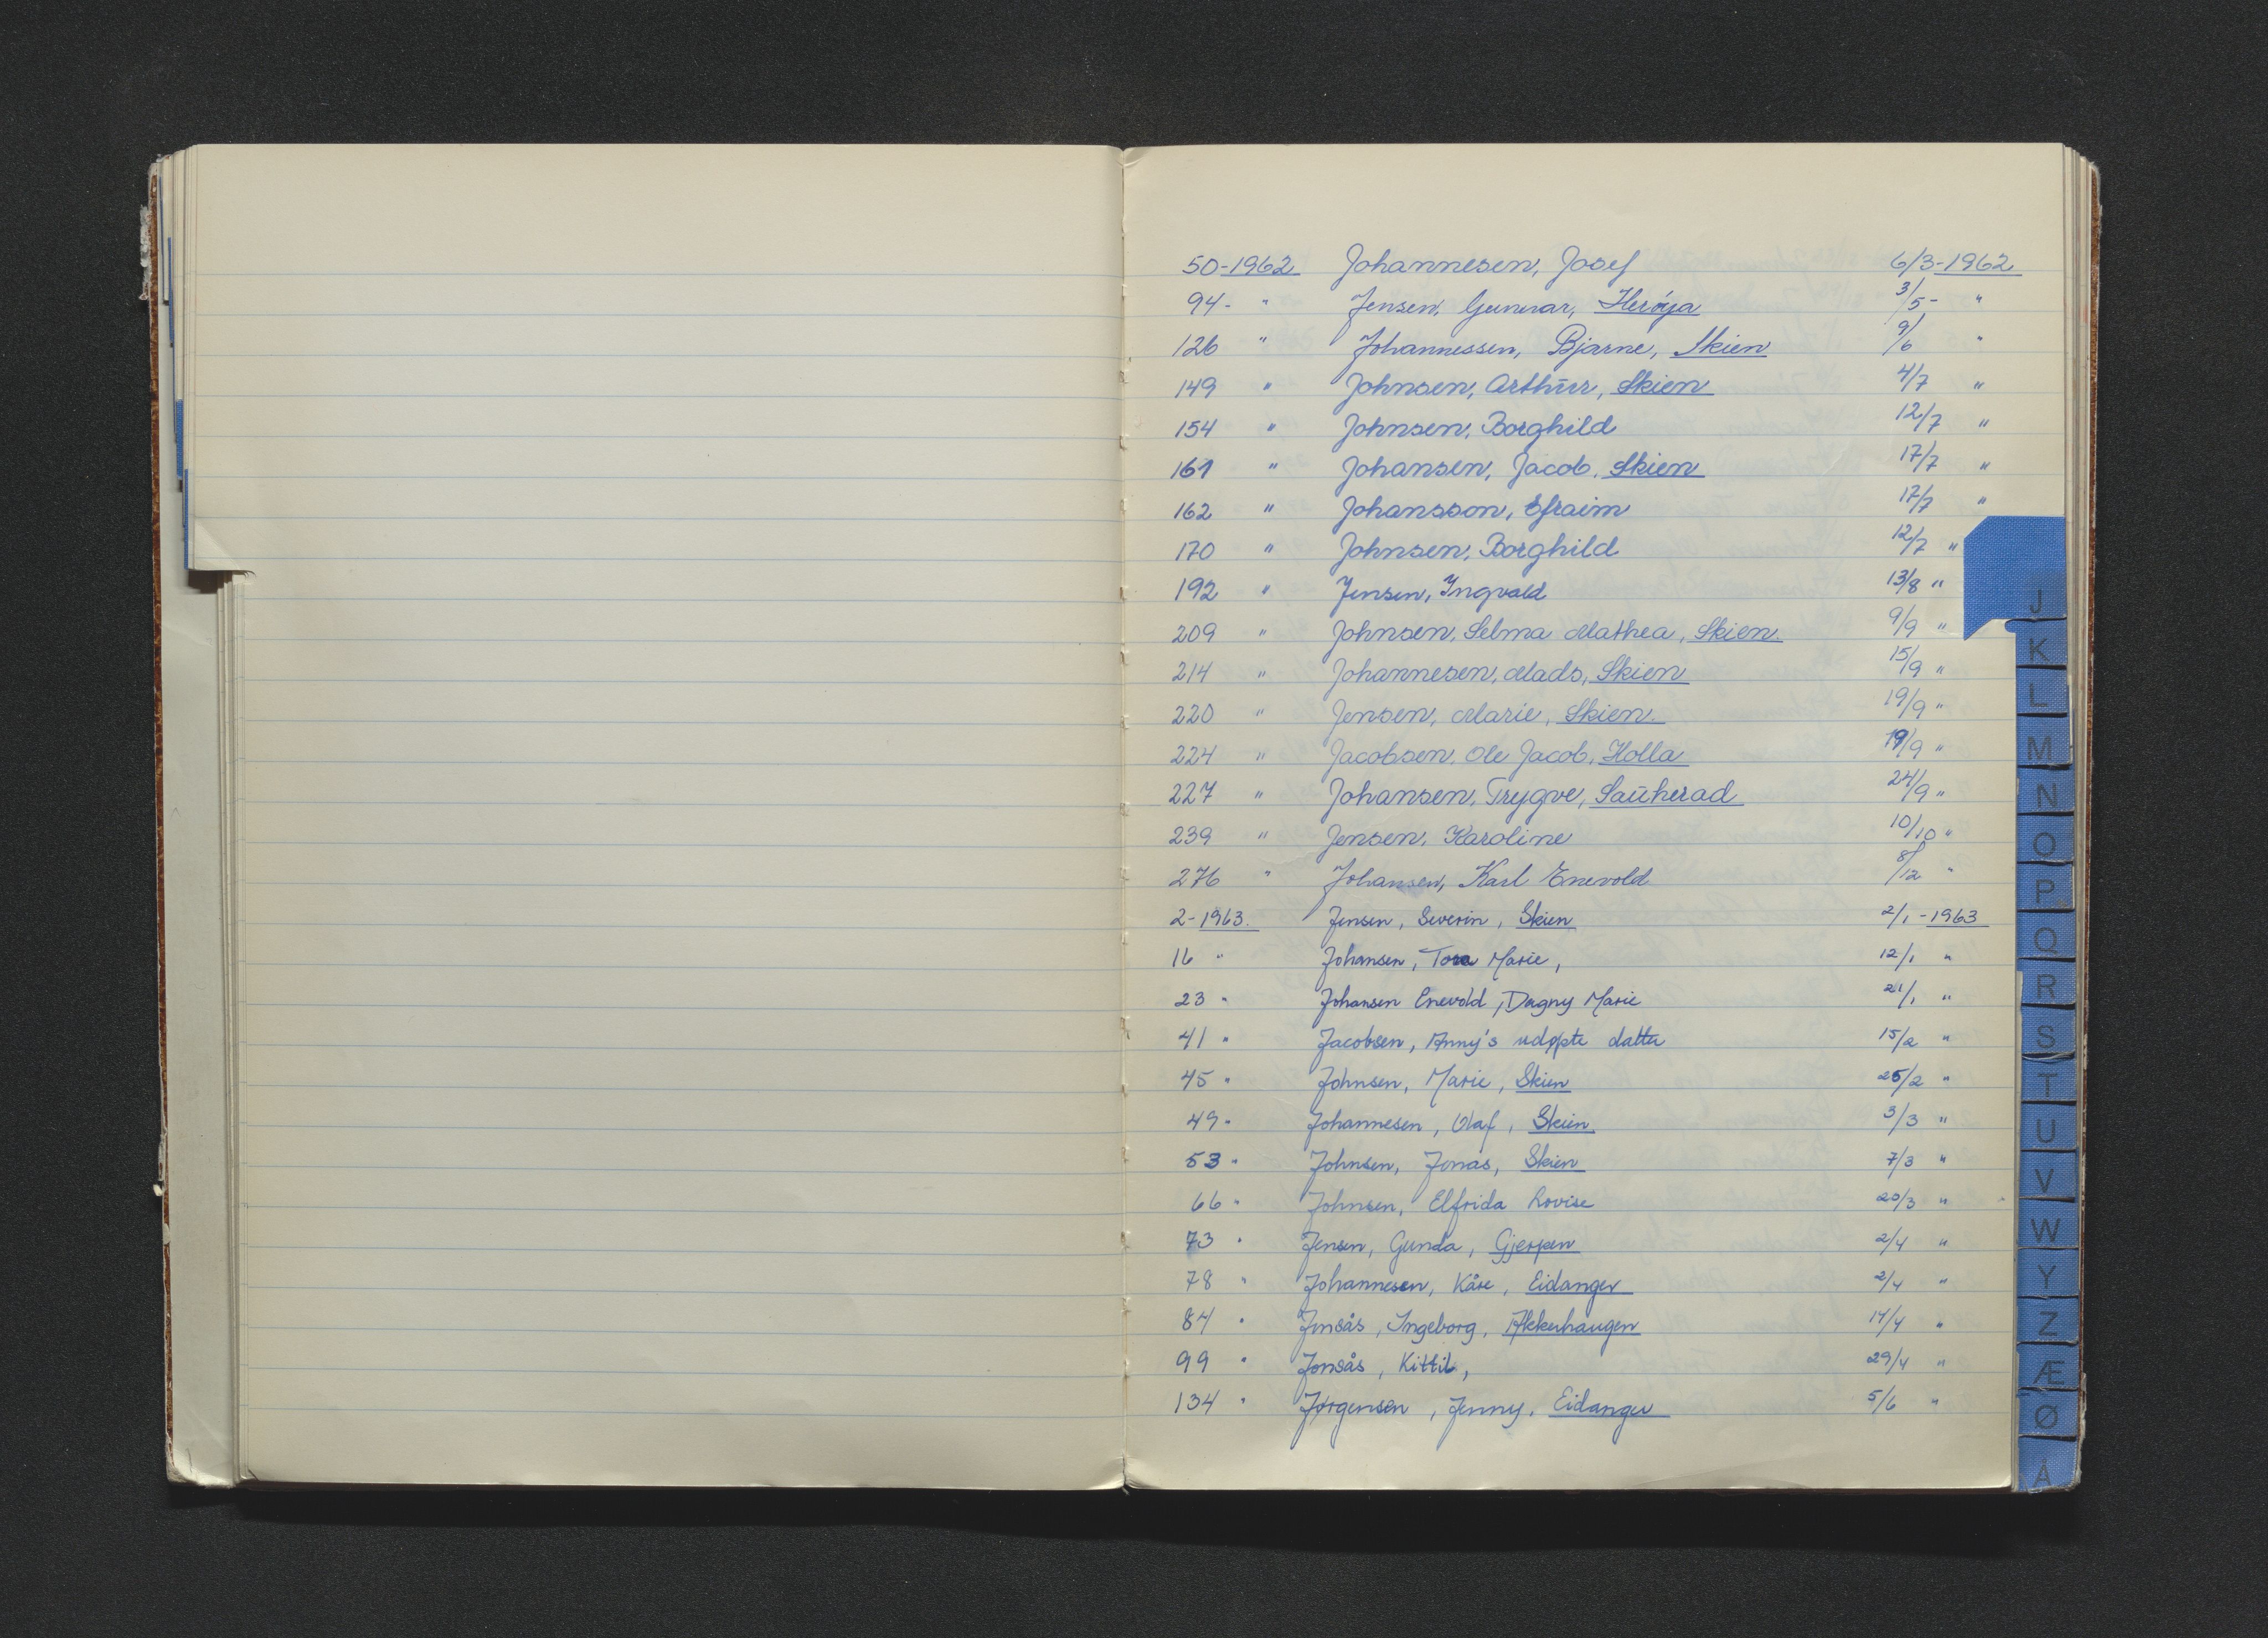 50-1962 Johannesen, Josef 6/3-1962
94- " Jensen, Gunnar, Herøya 3/5- "
126 " Johannessen, Bjarne, Skien 9/6 "
149 " Johnsen, Arthur, Skien 4/7 "
154 " Johnsen, Borghild 12/7 "
161 " Johansen, Jacob, Skien 17/7 "
162 " Johansson, Efraim 17/7 "
170 " Johnsen, Borghild 12/7 "
192 " Jensen, Ingvald 13/8 "
209 " Johnsen, Selma Mathea, Skien. 9/9 "
214 " Johannesen, Mads, Skien 15/9 "
220 " Jensen, Marie, Skien. 19/9 "
224 " Jacobsen, Ole Jacob, Holla 19/9 "
227 " Johansen, Trygve, Sauherad 24/9 "
239 " Jensen, Karoline 10/10 "
276 " Johansen, Karl Enevold 8/12 "
2-1963. Jensen, Severin, Skien 2/1-1963
16 " Johansen, Tora Marie, 12/1 "
23 " Johansen Enevold, Dagny Marie 21/1 "
41 " Jacobsen, Anny's udøpte datter 15/2 "
45 " Johnsen, Marie, Skien 25/2 "
49 " Johannesen, Olaf, Skien. 3/3 "
53 " Johnsen, Jonas, Skien 7/3 "
66 " Johnsen, Elfrida Lovise 20/3 "
73 " Jensen, Gunda, Gjerpen 2/4 "
78 " Johannesen, Kåre, Eidanger 2/4 "
84 " Jonsås, Ingeborg, Akkerhaugen 14/4 "
99 " Jonsås, Kittil, 29/4 "
134 " Jørgensen, Jenny, Eidanger 5/6 "
J
K
L
M
N
O
P
Q
R
S
T
U
V
W
Y
Z
Æ
Ø
Å